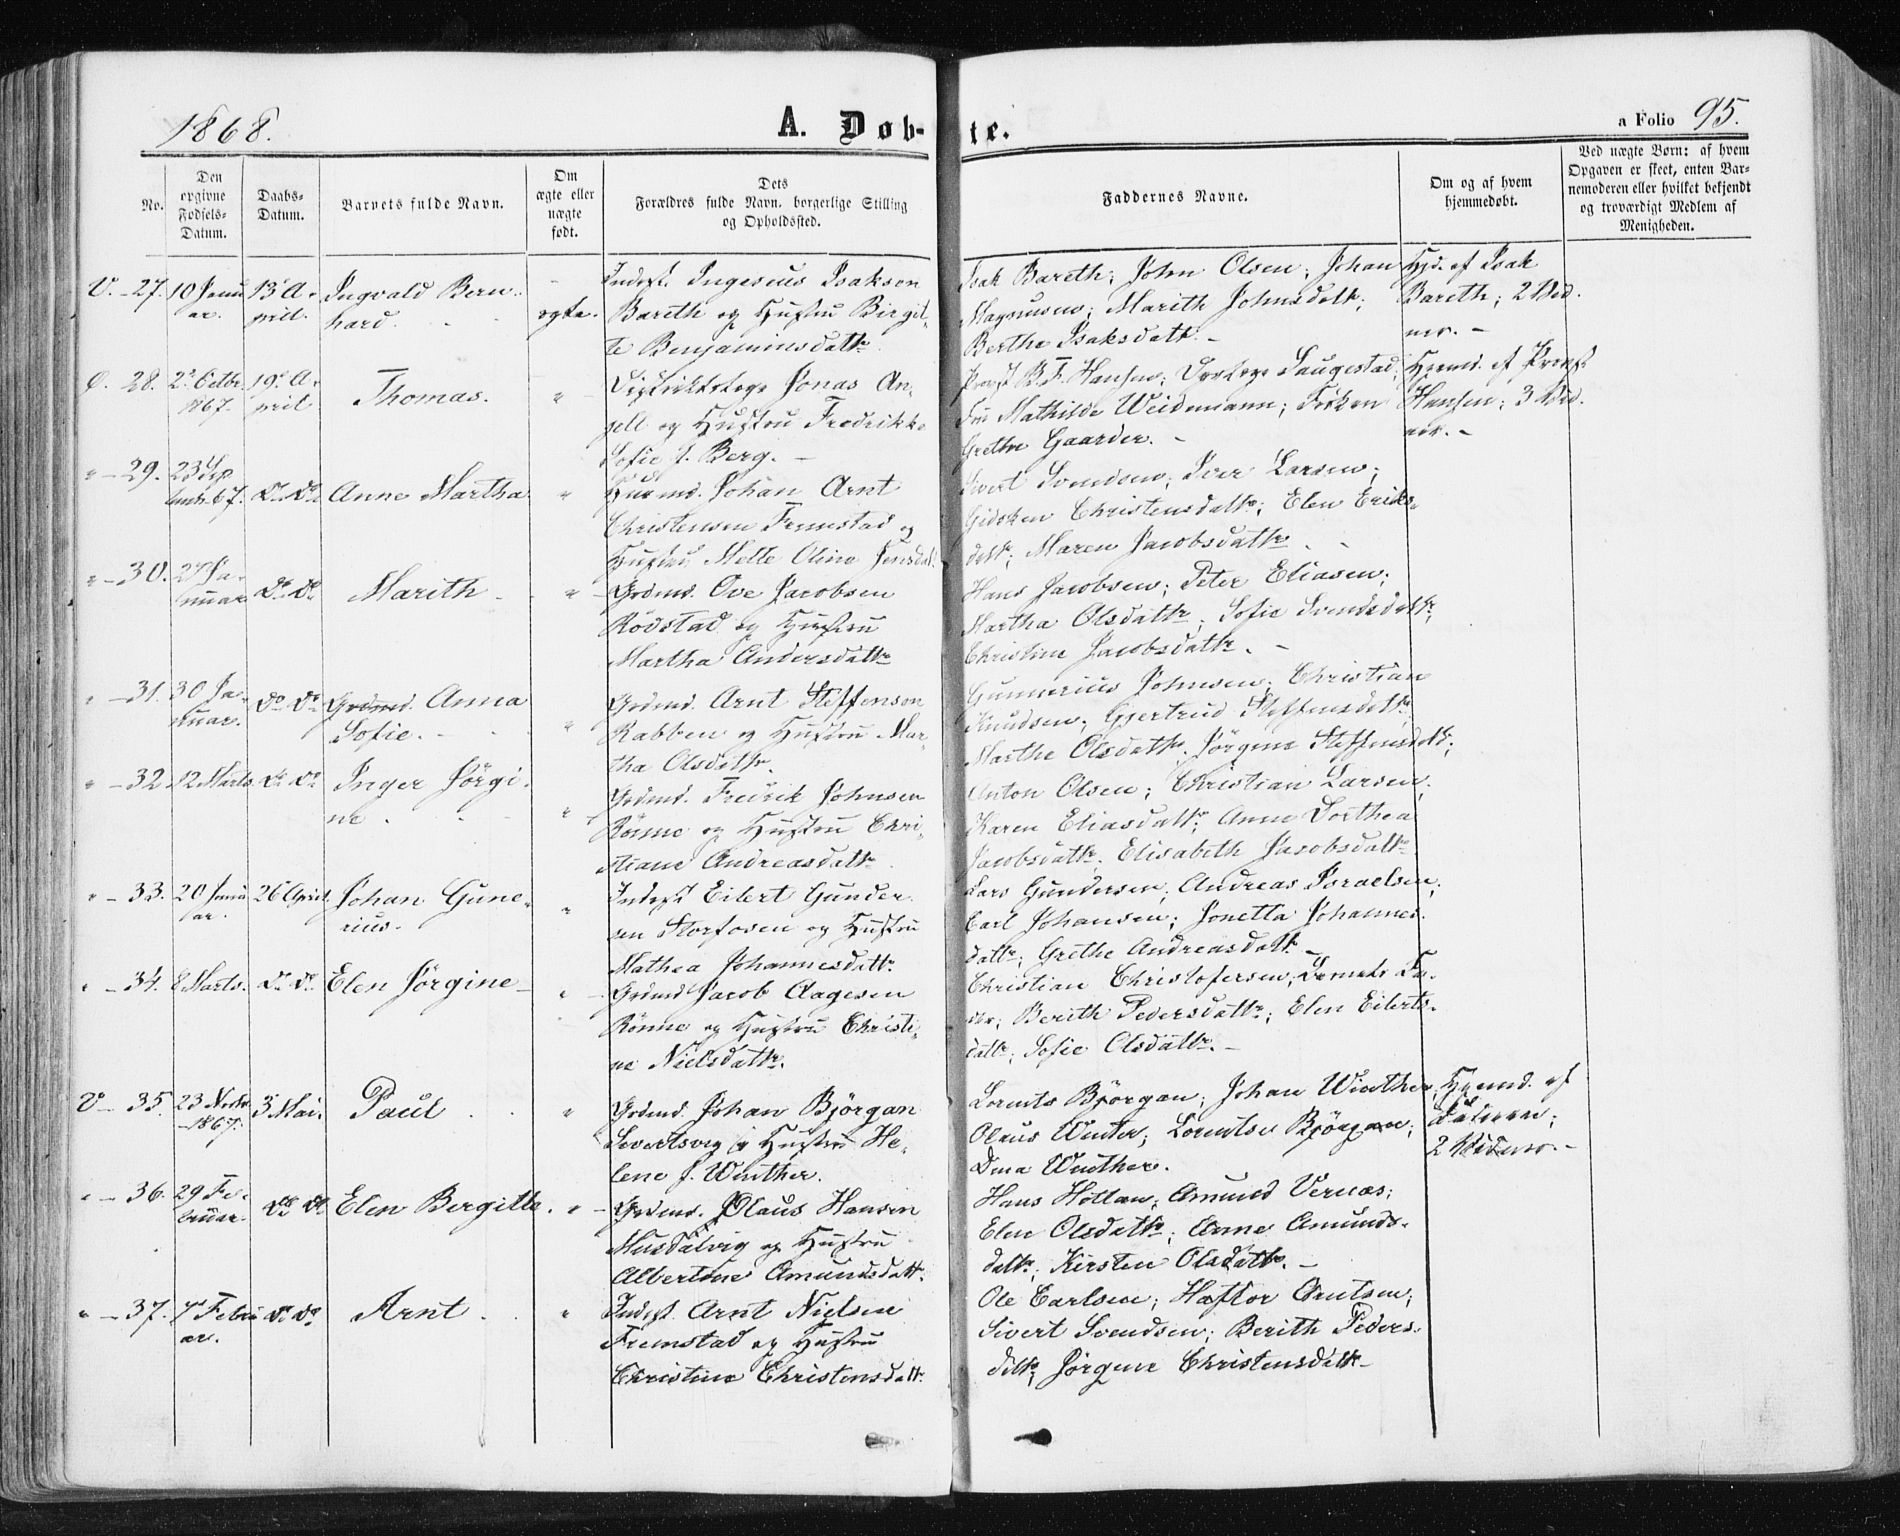 1868.
A. Døb-
te.
a Folio 95.
No.
Den opgivne Fødsels-Datum.
Daabs-Datum.
Barnets fulde Navn.
Om ægte eller uægte født.
Dets Forældres fulde Navn, borgerlige Stilling og Opholdssted.
Faddernes Navne.
Om og af hvem hjemmedøbt.
Ved uægte Børn: af hvem
Opgaven er skeet, enten Bar-
nemoderen eller hvilket bekjendt
og troværdigt Medlem af
Menigheden.
V. - 27. 10 Janu- 13 A- Ingvald Bern-
ar. pril. hard. ægte.
Inderst. Ingesius Isaksen
Bareth og Hustru Birgit-
te Benjaminsdatr.
Isak Bareth; John Olsen; Johan
Magnusen; Marith Johnsdatr;
Berthe Isaksdatr. -
Hjd. af Isak
Bareth; 2 Vid-
ner. -
28. 2 Octbr. 19 A-
1867. pril Thomas. "
Distriktslæge Jonas An-
gell og Hustru Fredrikke
Sofie J. Berg. -
Provst B. F. Hansen; Doktor Saugestad;
Fru Mathilde Weidemann; Frøken
Grethe Gaarder. -
Hjemd. af Provst
Hansen; 3 Vid-
ner. -
" - 29. 23 Sep
tembr 67. do do Anne Martha "
Huusmd. Johan Arnt
Christensen Fremstad og
Hustru Mette Oline Jensdatr.
Sivert Svendsen; Iver Larsen;
Gidsken Christensdatr; Elen Eriks-
datr; Maren Jacobsdatr. -
" - 30. 27 Ja-
nuar do do Marith "
Grdmd. Ove Jacobsen
Rödstad og Hustru
Martha Andersdatr
Hans Jacobsen; Peter Eliasen;
Martha Olsdatr; Sofie Svendsdatr;
Christine Jacobsdatr. -
" - 31. 30 Ja-
nuar. do do Grdmd. Anna
Sofie. "
Grdmd. Arnt Steffensen
Rabben og Hustru Mar-
tha Olsdatr.
Gunnerius Johnsen; Christian
Knudsen; Gjertrud Steffensdatr
Marthe Olsdatr; Jörgine Steffensdatr;
" - 32. 12 Marts. do do Inger Jörgi-
ne. "
Grdmd. Fredrik Johnsen
Rönne og Hustru Chri-
stiane Andreasdatr
Anton Olsen; Christian Larsen;
Karen Eliasdatr; Anne Dorthea
Jacobsdatr; Elisabeth Jacobsdatr
" - 33. 20 Janu
ar. 26 April. Johan Gune-
rius. "
Inderst Eilert Gunder-
sen Storfosen og Hustru
Mathea Johannesdatr.
Lars Gundersen; Andreas Israelsen;
Carl Johansen; Jonetta Johannes-
datr; Grethe Andreasdatr -
" - 34. 8 Marts. do do Elen Jörgine "
Grdmd Jacob Aagesen
Rönne og Hustru Christi-
ne Nielsdatr.
Christian Christofersen; Barnets Fa-
der; Berith Pedersdatr; Elen Eilerts-
datr; Sofie Olsdatr. -
V - 35. 23 Novbr
1867. 3 Mai. Paul "
Grdmd. Johan Björgan
Severtsvig og Hustru He-
lene J. Winther.
Lorents Björgan; Johan Winther;
Olaus Winter; Lorentse Björgan;
Dina Winther.
Hjemd. af
Faderen;
2 Vidner. -
" - 36. 29 Fe-
bruar. do do Elen Bergitte. "
Grdmd. Olaus Hansen
Musdalvig og Hustru
Albertine Amundsdatr.
Hans Hottan; Amund Vernæs;
Elen Olsdatr; Anne Amunds-
datr; Kirsten Olsdatr. -
" - 37. 7 Febru-
ar. do do Arnt "
Inderst. Arnt Nielsen
Fremstad og Hustru
Christine Christensdatr.
Ole Carlsen; Haftor Arntsen;
Sivert Svendsen; Berith Peders-
datr; Jörgine Christensdatr -